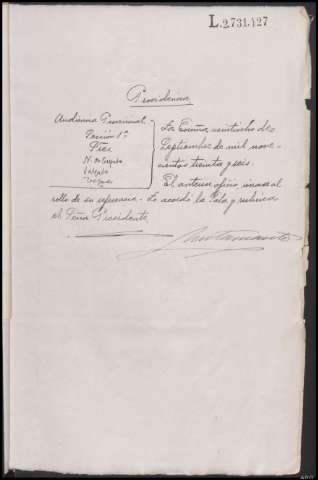 L.2.731.127
Providencia
Audiencia Provincial
Sección 1ª
La Coruña veintiocho de
Septiembre de mil nove-
cientos treinta y seis.
El anterior oficio, únase al
rollo de su referencia. Lo acordó la Sala y rubrica
el Señor Presidente.